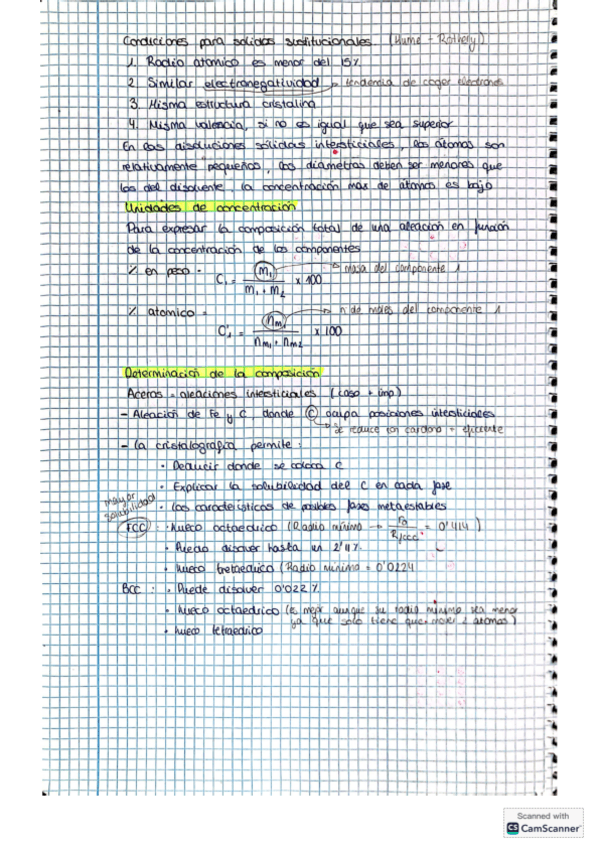 Condiciones para solidos sustitucionales (Hume - Rothery)
1. Radio atomico es menor del 15%
2. Similar electronegatividad → tendencia de coger electrones
3. Misma estructura cristalina
4. Misma valencia, si no es igual que sea superior
En las disoluciones sólidas intersticiales, los átomos son
relativamente pequeños, los diametros deben ser menores que
los del disolvente, la concentración max de átomos es bajo
Unidades de concentración
Para expresar la composición total de una aleación en función
de la concentración de los componentes
% en peso = C₁ = m₁ / (m₁ + m₂) x 100 → masa del componente 1
% atomico = C'₁ = nm₁ / (nm₁ + nm₂) x 100 → n de moles del componente 1
Determinación de la composición
Aceros = aleaciones intersticiales (caso + imp)
- Aleación de Fe y C donde C ocupa posiciones intersticiales
→ se reduce con carbono + eficiente
- La cristalografia permite:
• Deducir donde se coloca C
• Explicar la solubilidad del C en cada fase
• Las características de posibles fases metaestables
mayor solubilidad
FCC: • Hueco octaedrico (Radio mínimo → = 0'414)
• Puede disolver hasta un 2'11%
• Hueco tretraedrico (Radio minimo = 0'0224
BCC: • Puede disolver 0'022%
• Hueco octaedrico (es mejor aunque su radio mínimo sea menor
ya que solo tiene que mover 2 atomos)
• hueco tetraedrico
Scanned with
CS CamScanner